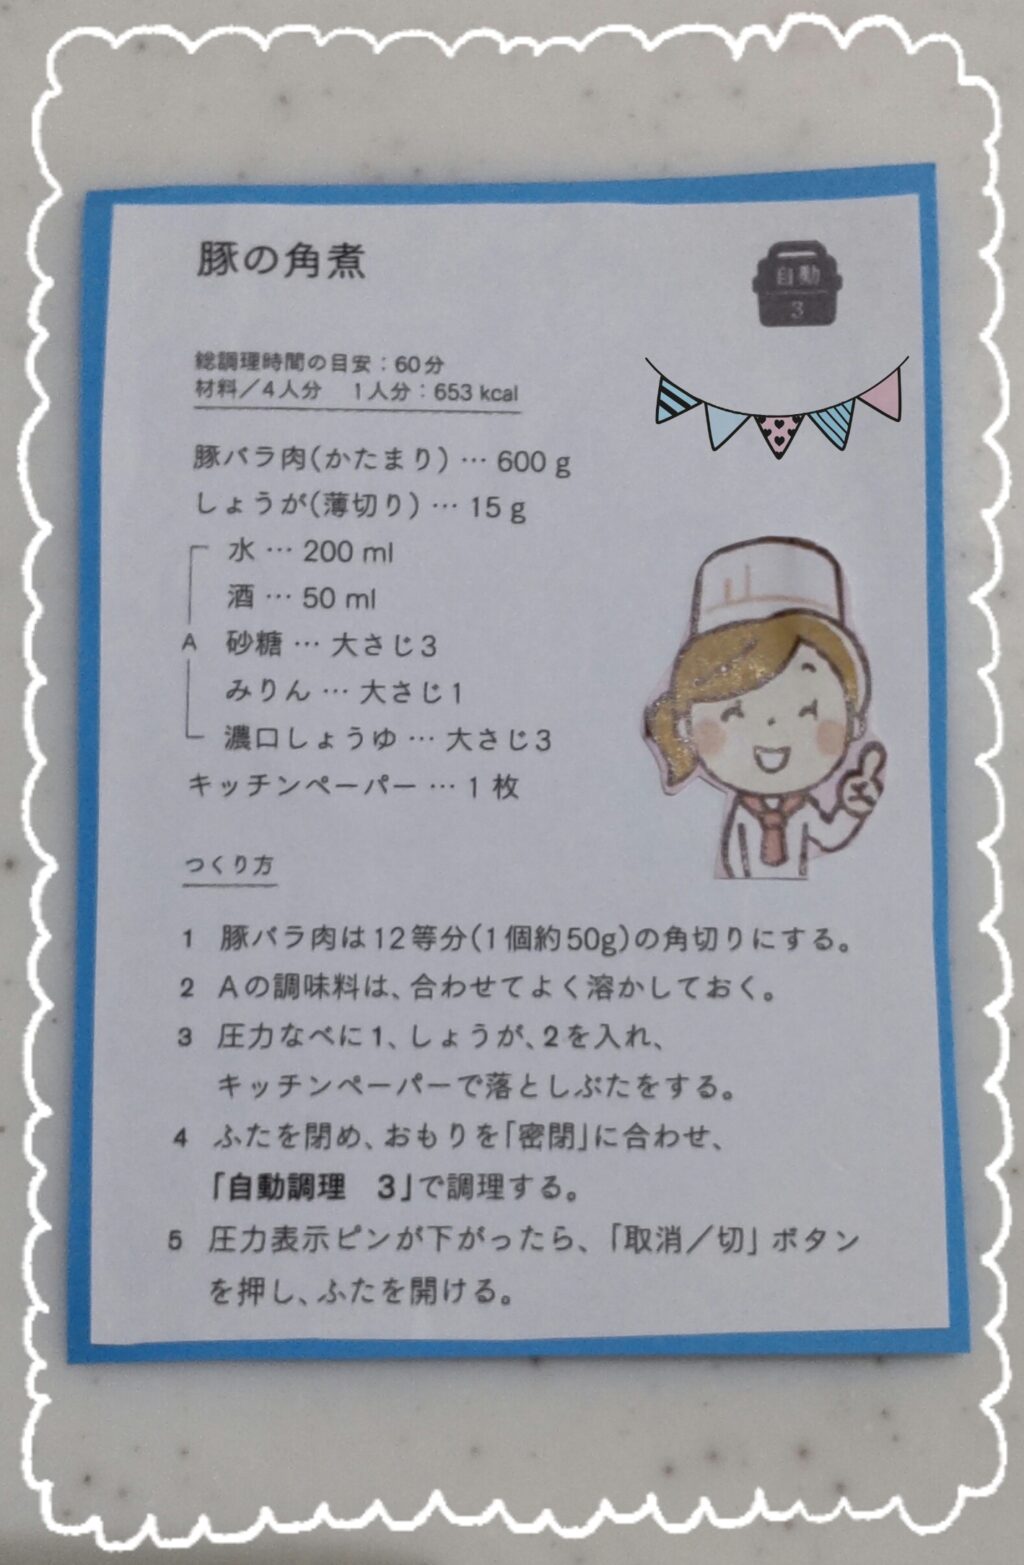 豚の角煮
自動
3
総調理時間の目安：60分
材料／4人分　1人分：653 kcal
豚バラ肉(かたまり) … 600 g
しょうが(薄切り) … 15 g
水 … 200 ml
酒 … 50 ml
A 砂糖 … 大さじ3
みりん … 大さじ1
濃口しょうゆ … 大さじ3
キッチンペーパー … 1 枚
つくり方
1 豚バラ肉は12等分(1個約50g)の角切りにする。
2 Aの調味料は、合わせてよく溶かしておく。
3 圧力なべに1、しょうが、2を入れ、
キッチンペーパーで落としぶたをする。
4 ふたを閉め、おもりを「密閉」に合わせ、
「自動調理　3」で調理する。
5 圧力表示ピンが下がったら、「取消／切」ボタン
を押し、ふたを開ける。